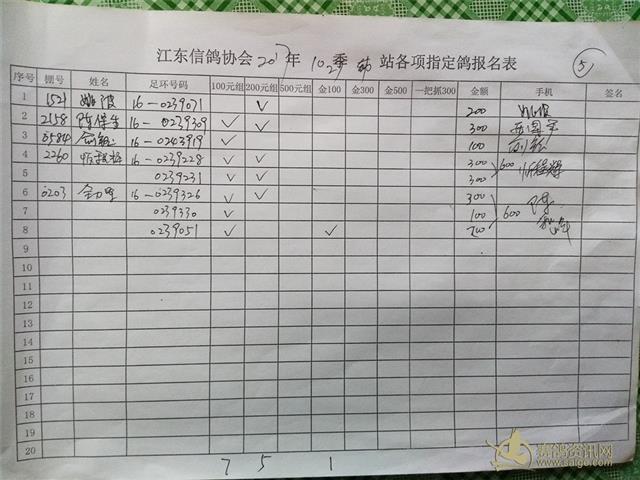 江东信鸽协会2017年 102季 站各项指定鸽报名表
5
序号 棚号 姓名 足环号码 100元组 200元组 500元组 金100 金300 金500 一把抓300 金额 手机 签名
1 1521 16-0239071 ✓ 200
2 2158 陈保生 16-0239309 ✓ ✓ 300
3 05840 16-0203919 ✓ 100
4 2260 16-0239228 ✓ ✓ 300 600
5 0239231 ✓ ✓ 300
6 0203 16-0239326 ✓ ✓ 300
7 0239330 ✓ 100 600
8 0239051 ✓ ✓ 200
9
10
11
12
13
14
15
16
17
18
19
20
7 5 1
赛鸽资讯网
www.saige.com